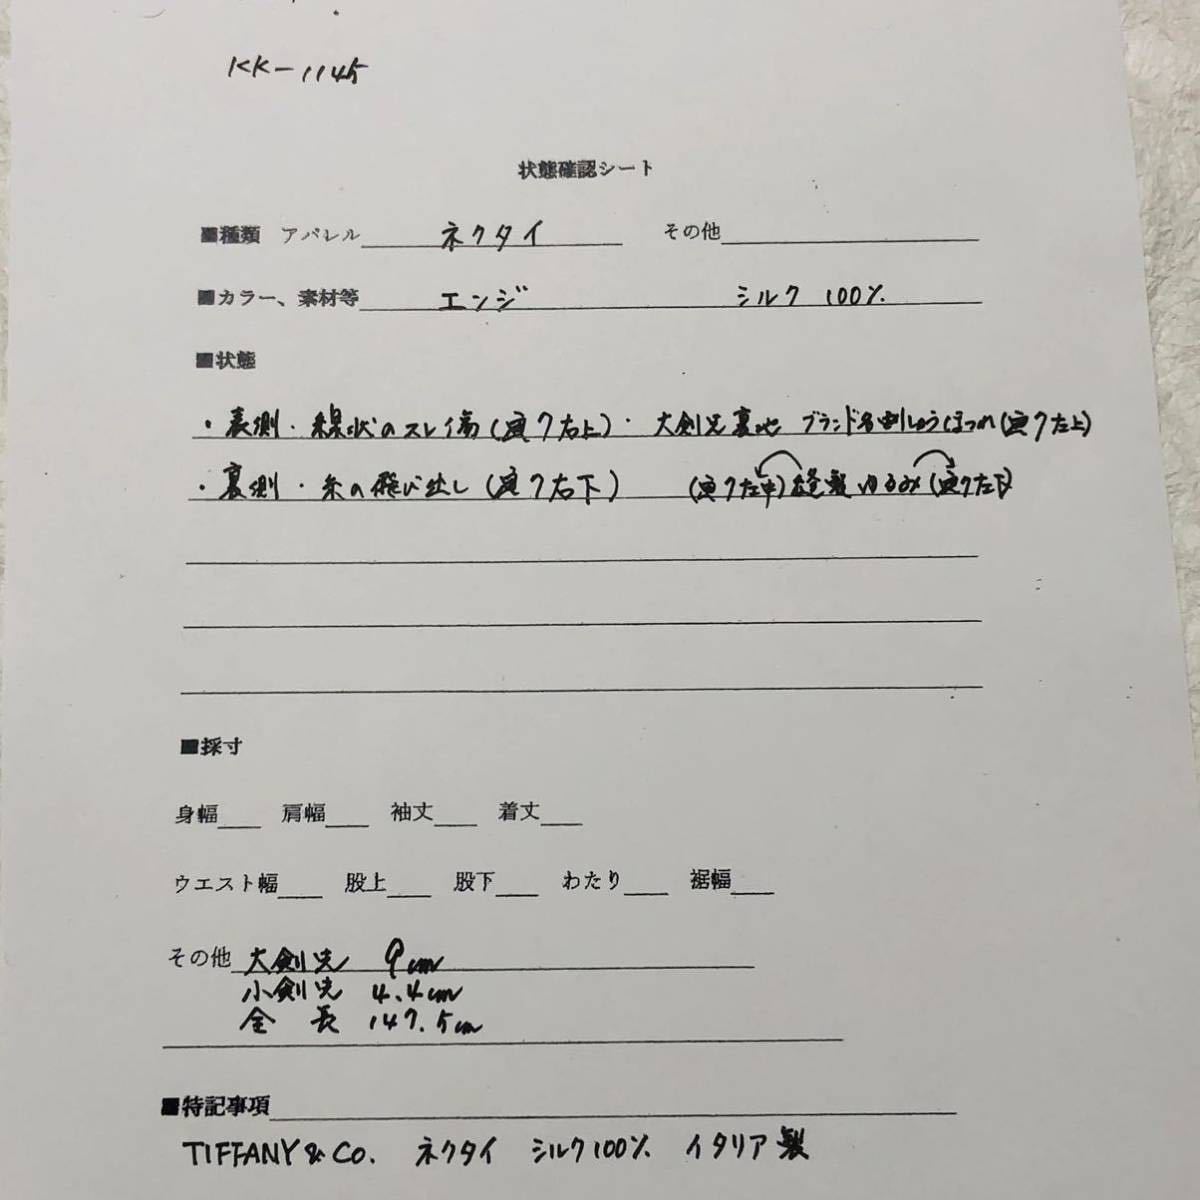 KK-1145
状態確認シート
■種類 アパレル ネクタイ その他
■カラー、素材等 エンジ シルク 100%
■状態
・表側・線状のスレ傷(写7右上)・大剣先裏地 ブランド名刺しゅうほつれ(写7左上)
・裏側・糸の飛び出し(写7右下) (写7左中)縫製ゆるみ(写7左下)
■採寸
身幅 肩幅 袖丈 着丈
ウエスト幅 股上 股下 わたり 裾幅
その他 大剣先 9cm
小剣先 4.4cm
全 長 147.5cm
■特記事項
TIFFANY & CO. ネクタイ シルク100% イタリア製